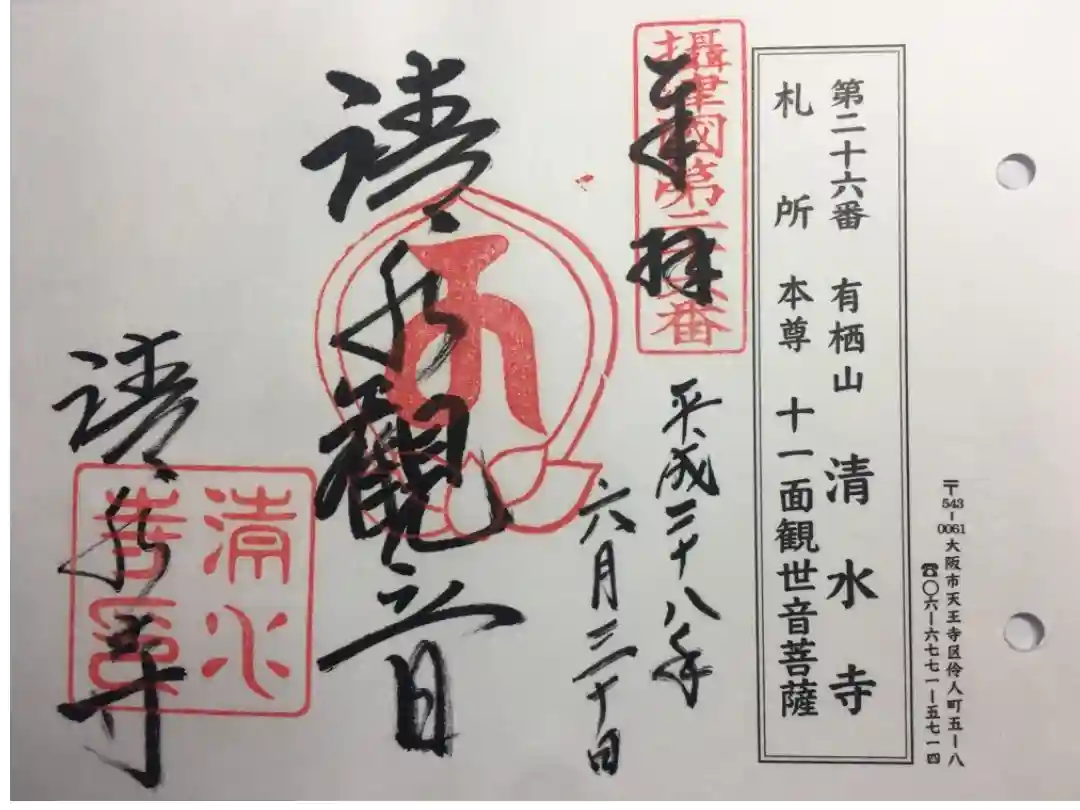 〒543-0061大阪市天王寺区伶人町五ー八
☎〇六ー六七七一ー五七一四
第二十六番 有栖山 清水寺
札所 本尊 十一面観世音菩薩
攝津國第二十六番
奉拝
平成二十八年
六月三十日
清水觀音
清水寺
清水
寺印